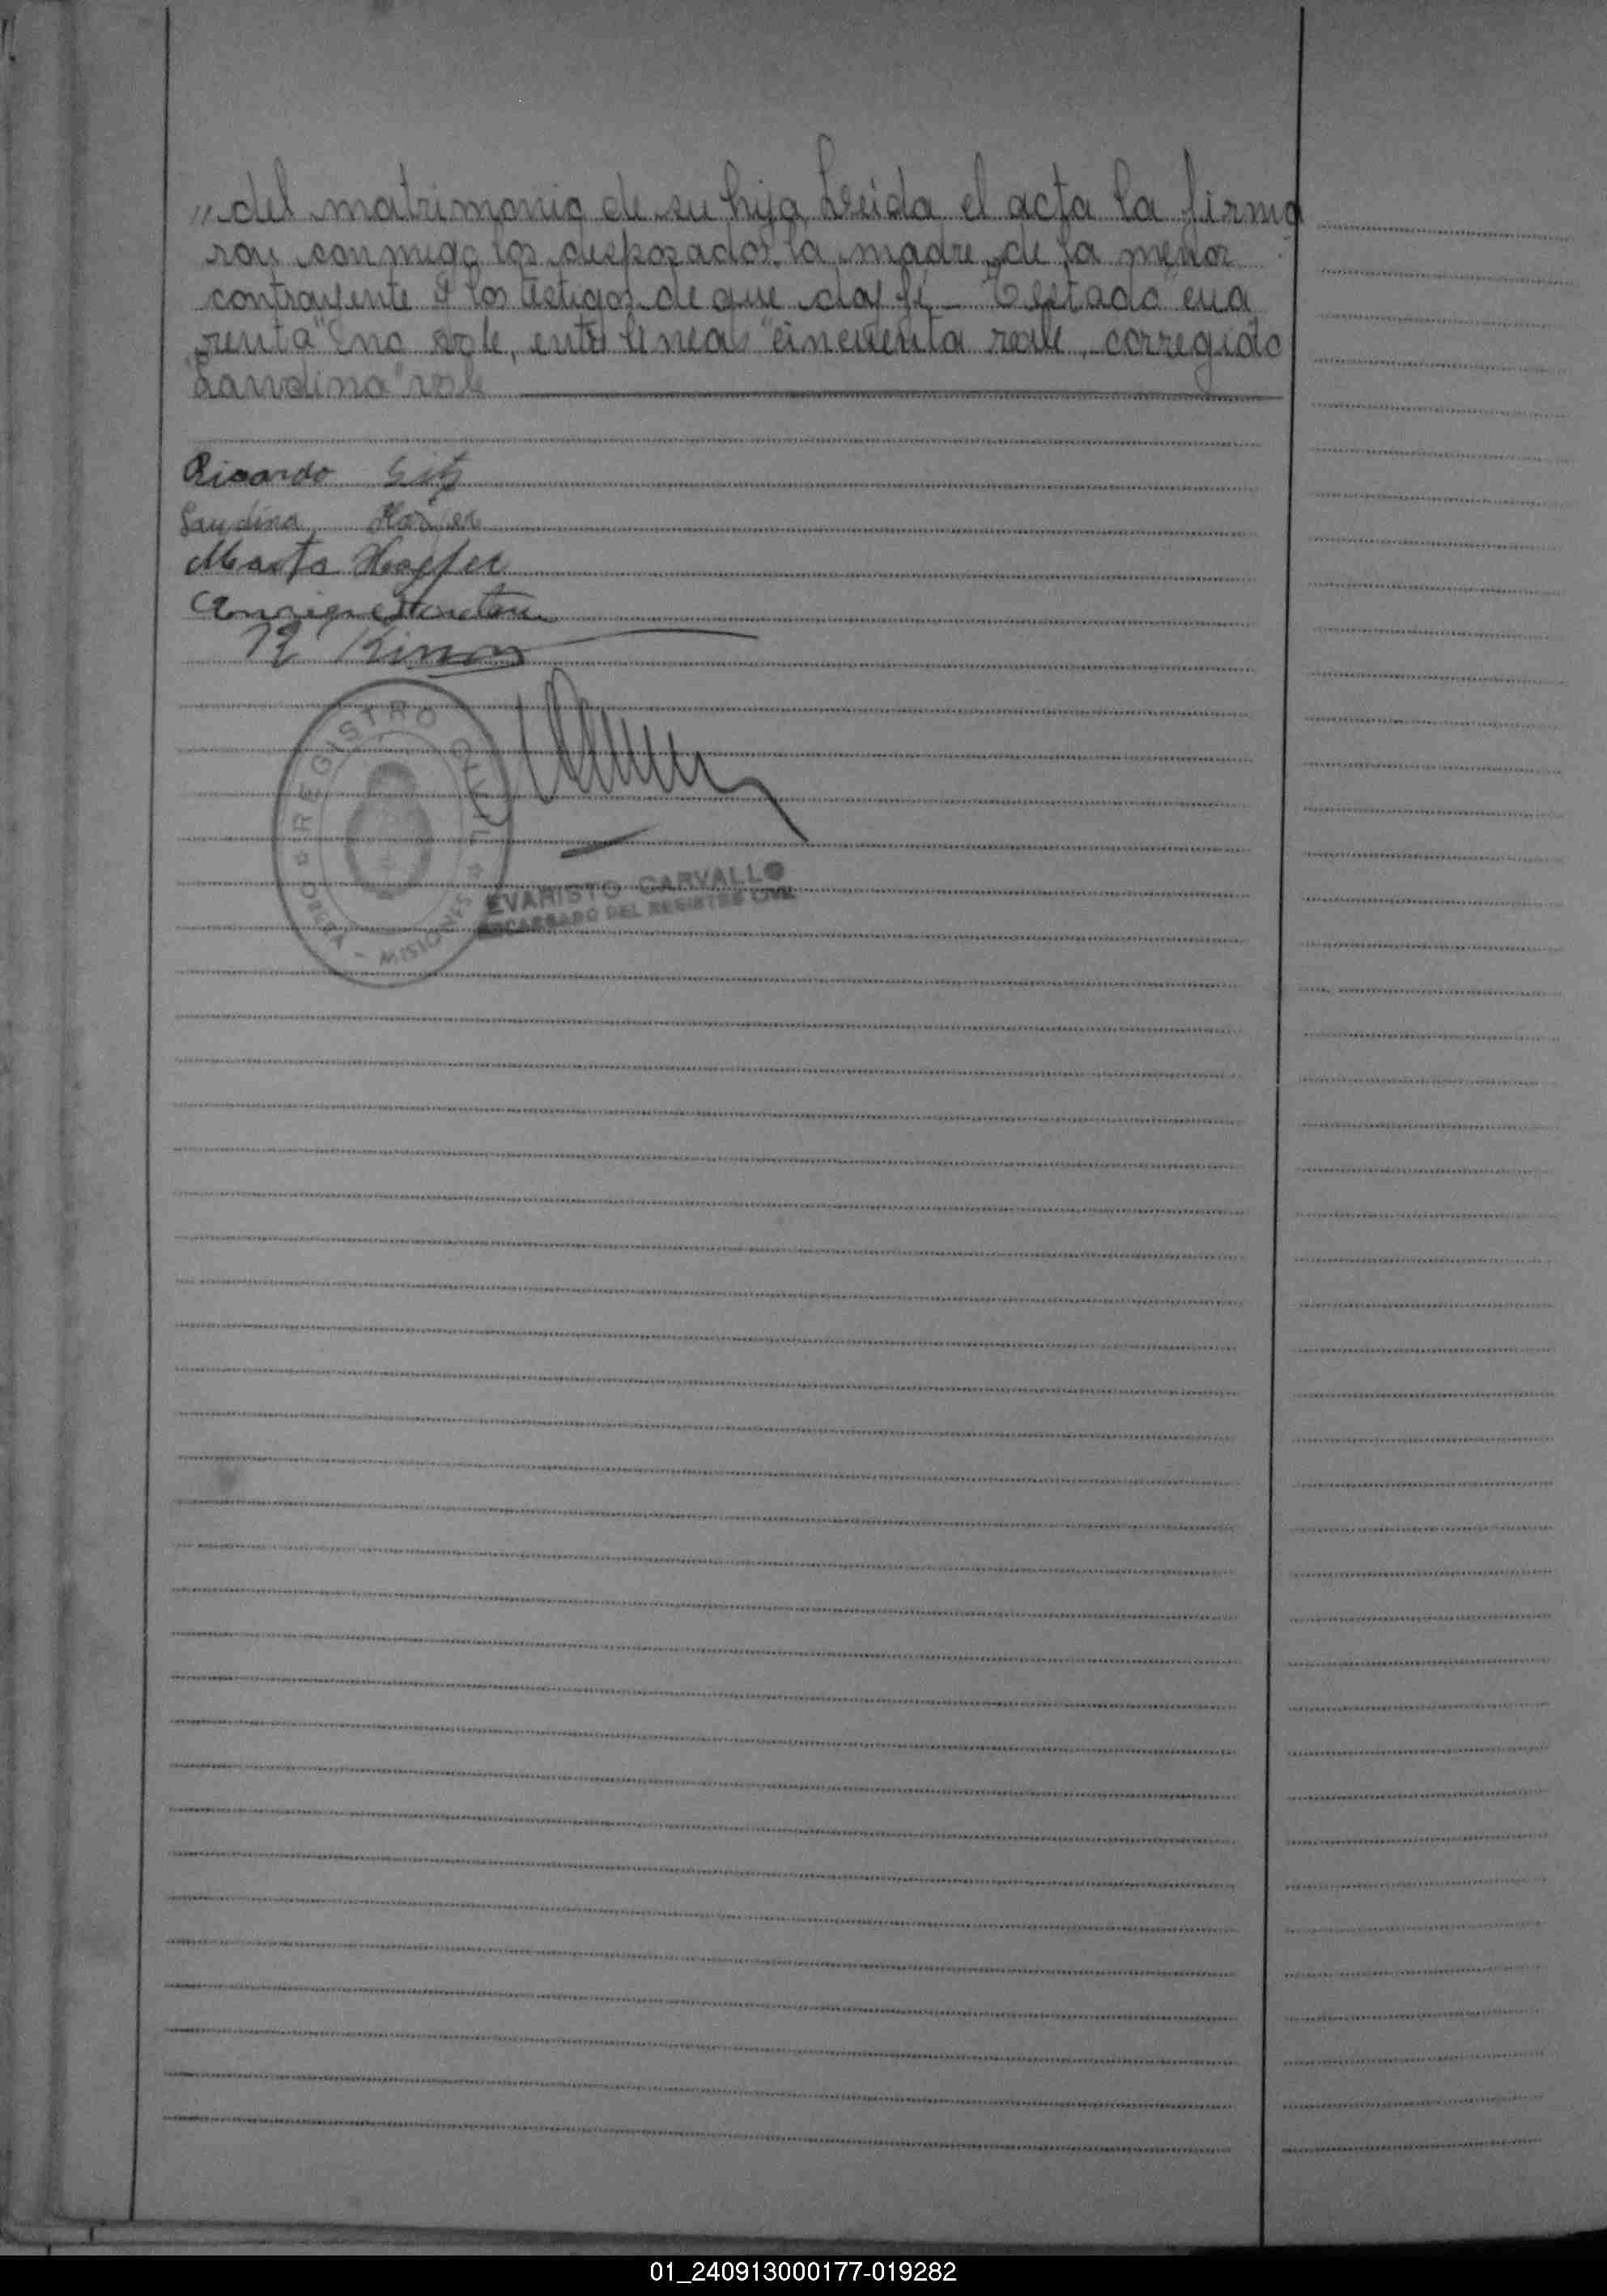 „ del matrimonio de su hija Leida el acta la firma
ron conmigo los desposados, la madre de la menor
contrayente y los testigos de que doy fé _ Testado "cua
renta" "no vale, entre lineas "cincuenta vale, corregido
"Laudina" vale
Ricardo
Laudina
Marta Hoffer
R Kimm
REGISTRO CIVIL
OBERA - MISIONES
EVARISTO CARVALLO
ENCARGADO DEL REGISTRO CIVIL
01_240913000177-019282